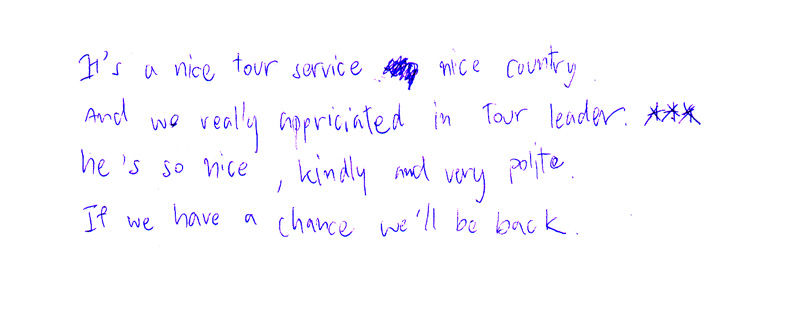 It's a nice tour service nice country.
And we really appriciated in Tour leader. ***
he's so nice, kindly and very polite.
If we have a chance we'll be back.